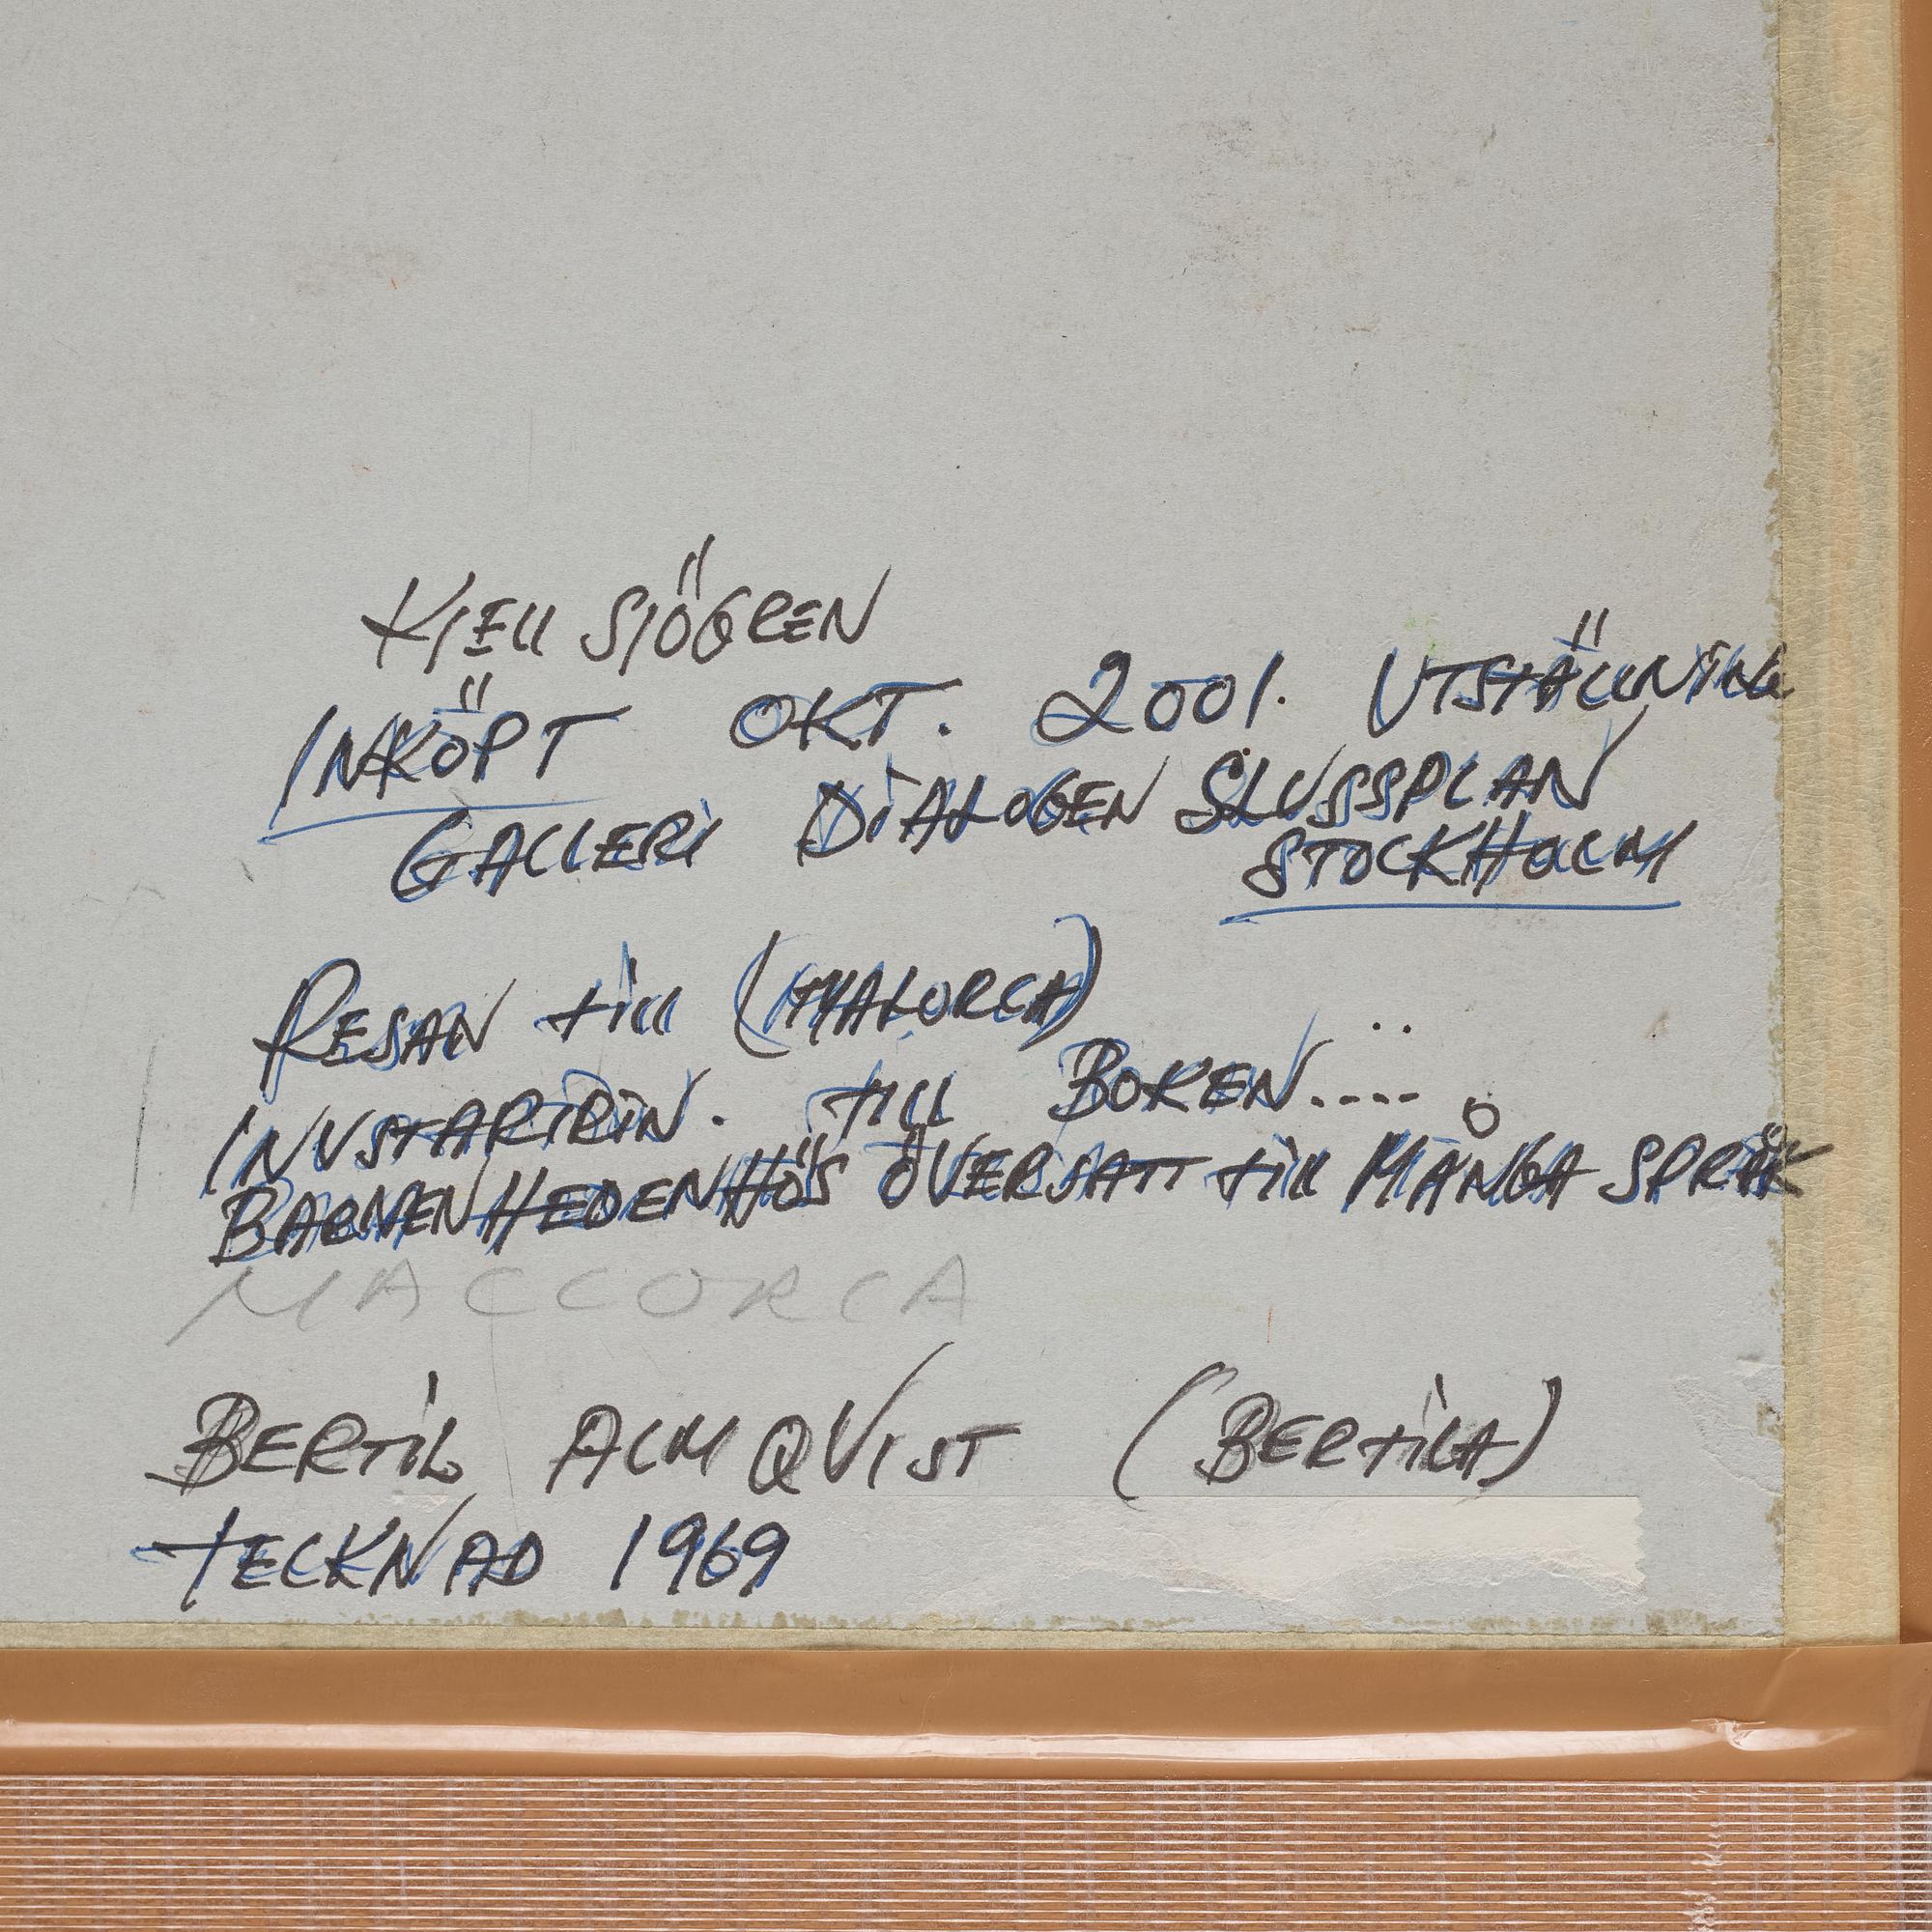 KJELL SJÖGREN
INKÖPT OKT. 2001. UTSTÄLLNING
GALLERI DIALOGEN SLUSSPLAN
STOCKHOLM
RESAN till (MALORCA)
till BOKEN....
BARNEN HEDENHÖS ÖVERSATT till MÅNGA SPRÅK
MALLORCA
BERTIL ALMQVIST (BERTILA)
tECKNAD 1969